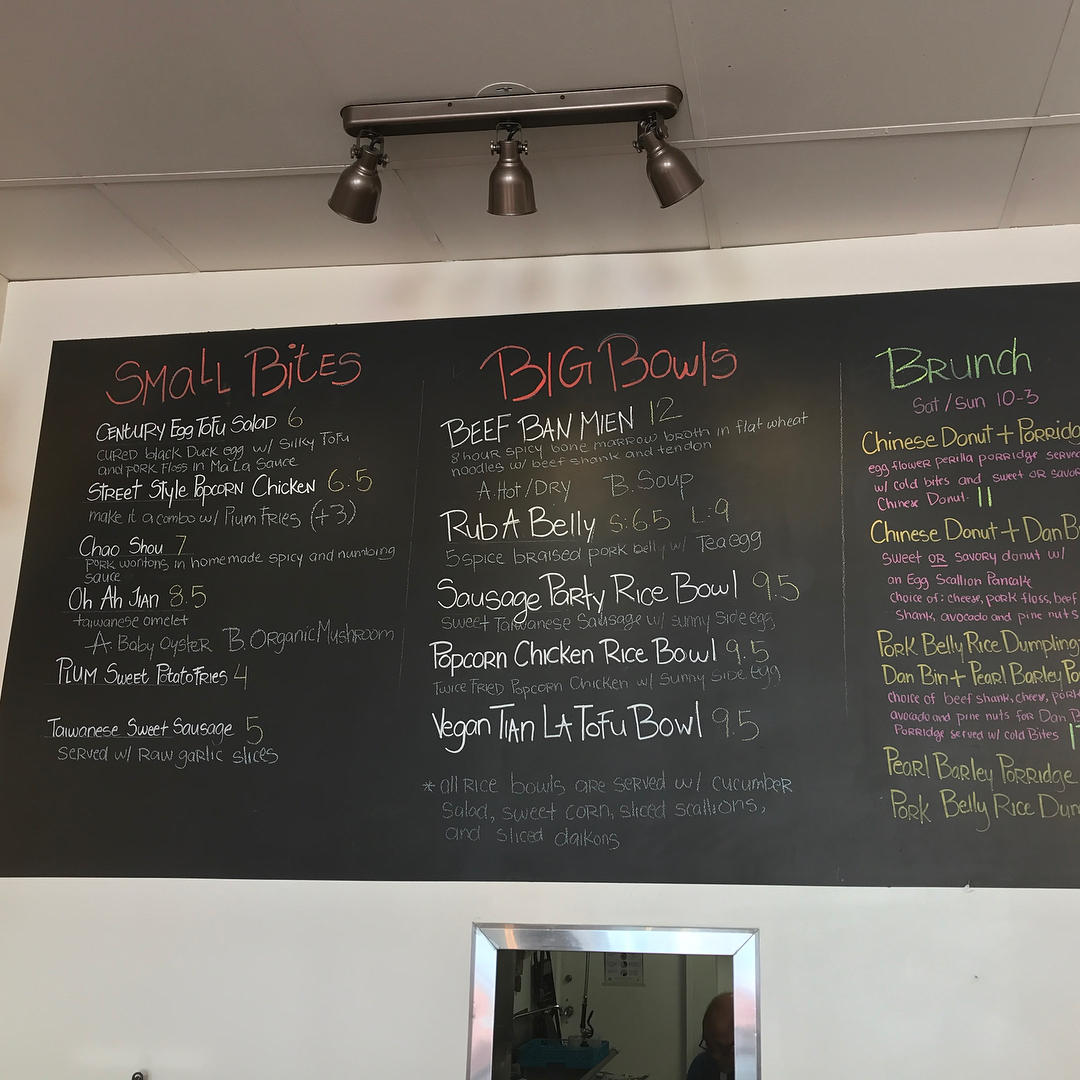 Small Bites
Century Egg Tofu Salad 6
cured black Duck egg w/ silky Tofu
and pork Floss in Ma La Sauce
Street Style Popcorn Chicken 6.5
make it a combo w/ Plum Fries (+3)
Chao Shou 7
pork wontons in homemade spicy and numbing
sauce
Oh Ah Jian 8.5
taiwanese omelet
A. Baby Oyster B. Organic Mushroom
Plum Sweet Potato Fries 4
Taiwanese Sweet Sausage 5
served w/ raw garlic slices
Big Bowls
BEEF BAN MIEN 12
8 hour spicy bone marrow broth in flat wheat
noodles w/ beef shank and tendon
A. Hot/DRY B. Soup
Rub A Belly S:6.5 L:9
5 spice braised pork belly w/ Tea egg
Sausage Party Rice Bowl 9.5
Sweet Taiwanese Sausage w/ sunny side egg
Popcorn Chicken Rice Bowl 9.5
Twice Fried Popcorn Chicken w/ Sunny Side Egg
Vegan Tian La Tofu Bowl 9.5
* all rice bowls are served w/ cucumber
salad, sweet corn, sliced scallions,
and sliced daikons
Brunch
Sat/Sun 10-3
Chinese Donut + Porridg
egg flower perilla porridge serve
w/ cold bites and sweet OR savor
Chinese Donut. 11
Chinese Donut + Dan B
sweet OR savory donut w/
an Egg Scallion Pancake
choice of: cheese, pork floss, beef
shank, avocado and pine nuts
Pork Belly Rice Dumpling
Dan Bin + Pearl Barley Po
choice of beef shank, cheese, pork
avocado and pine nuts for Dan B
Porridge served w/ cold Bites
Pearl Barley Porridge
Pork Belly Rice Dum